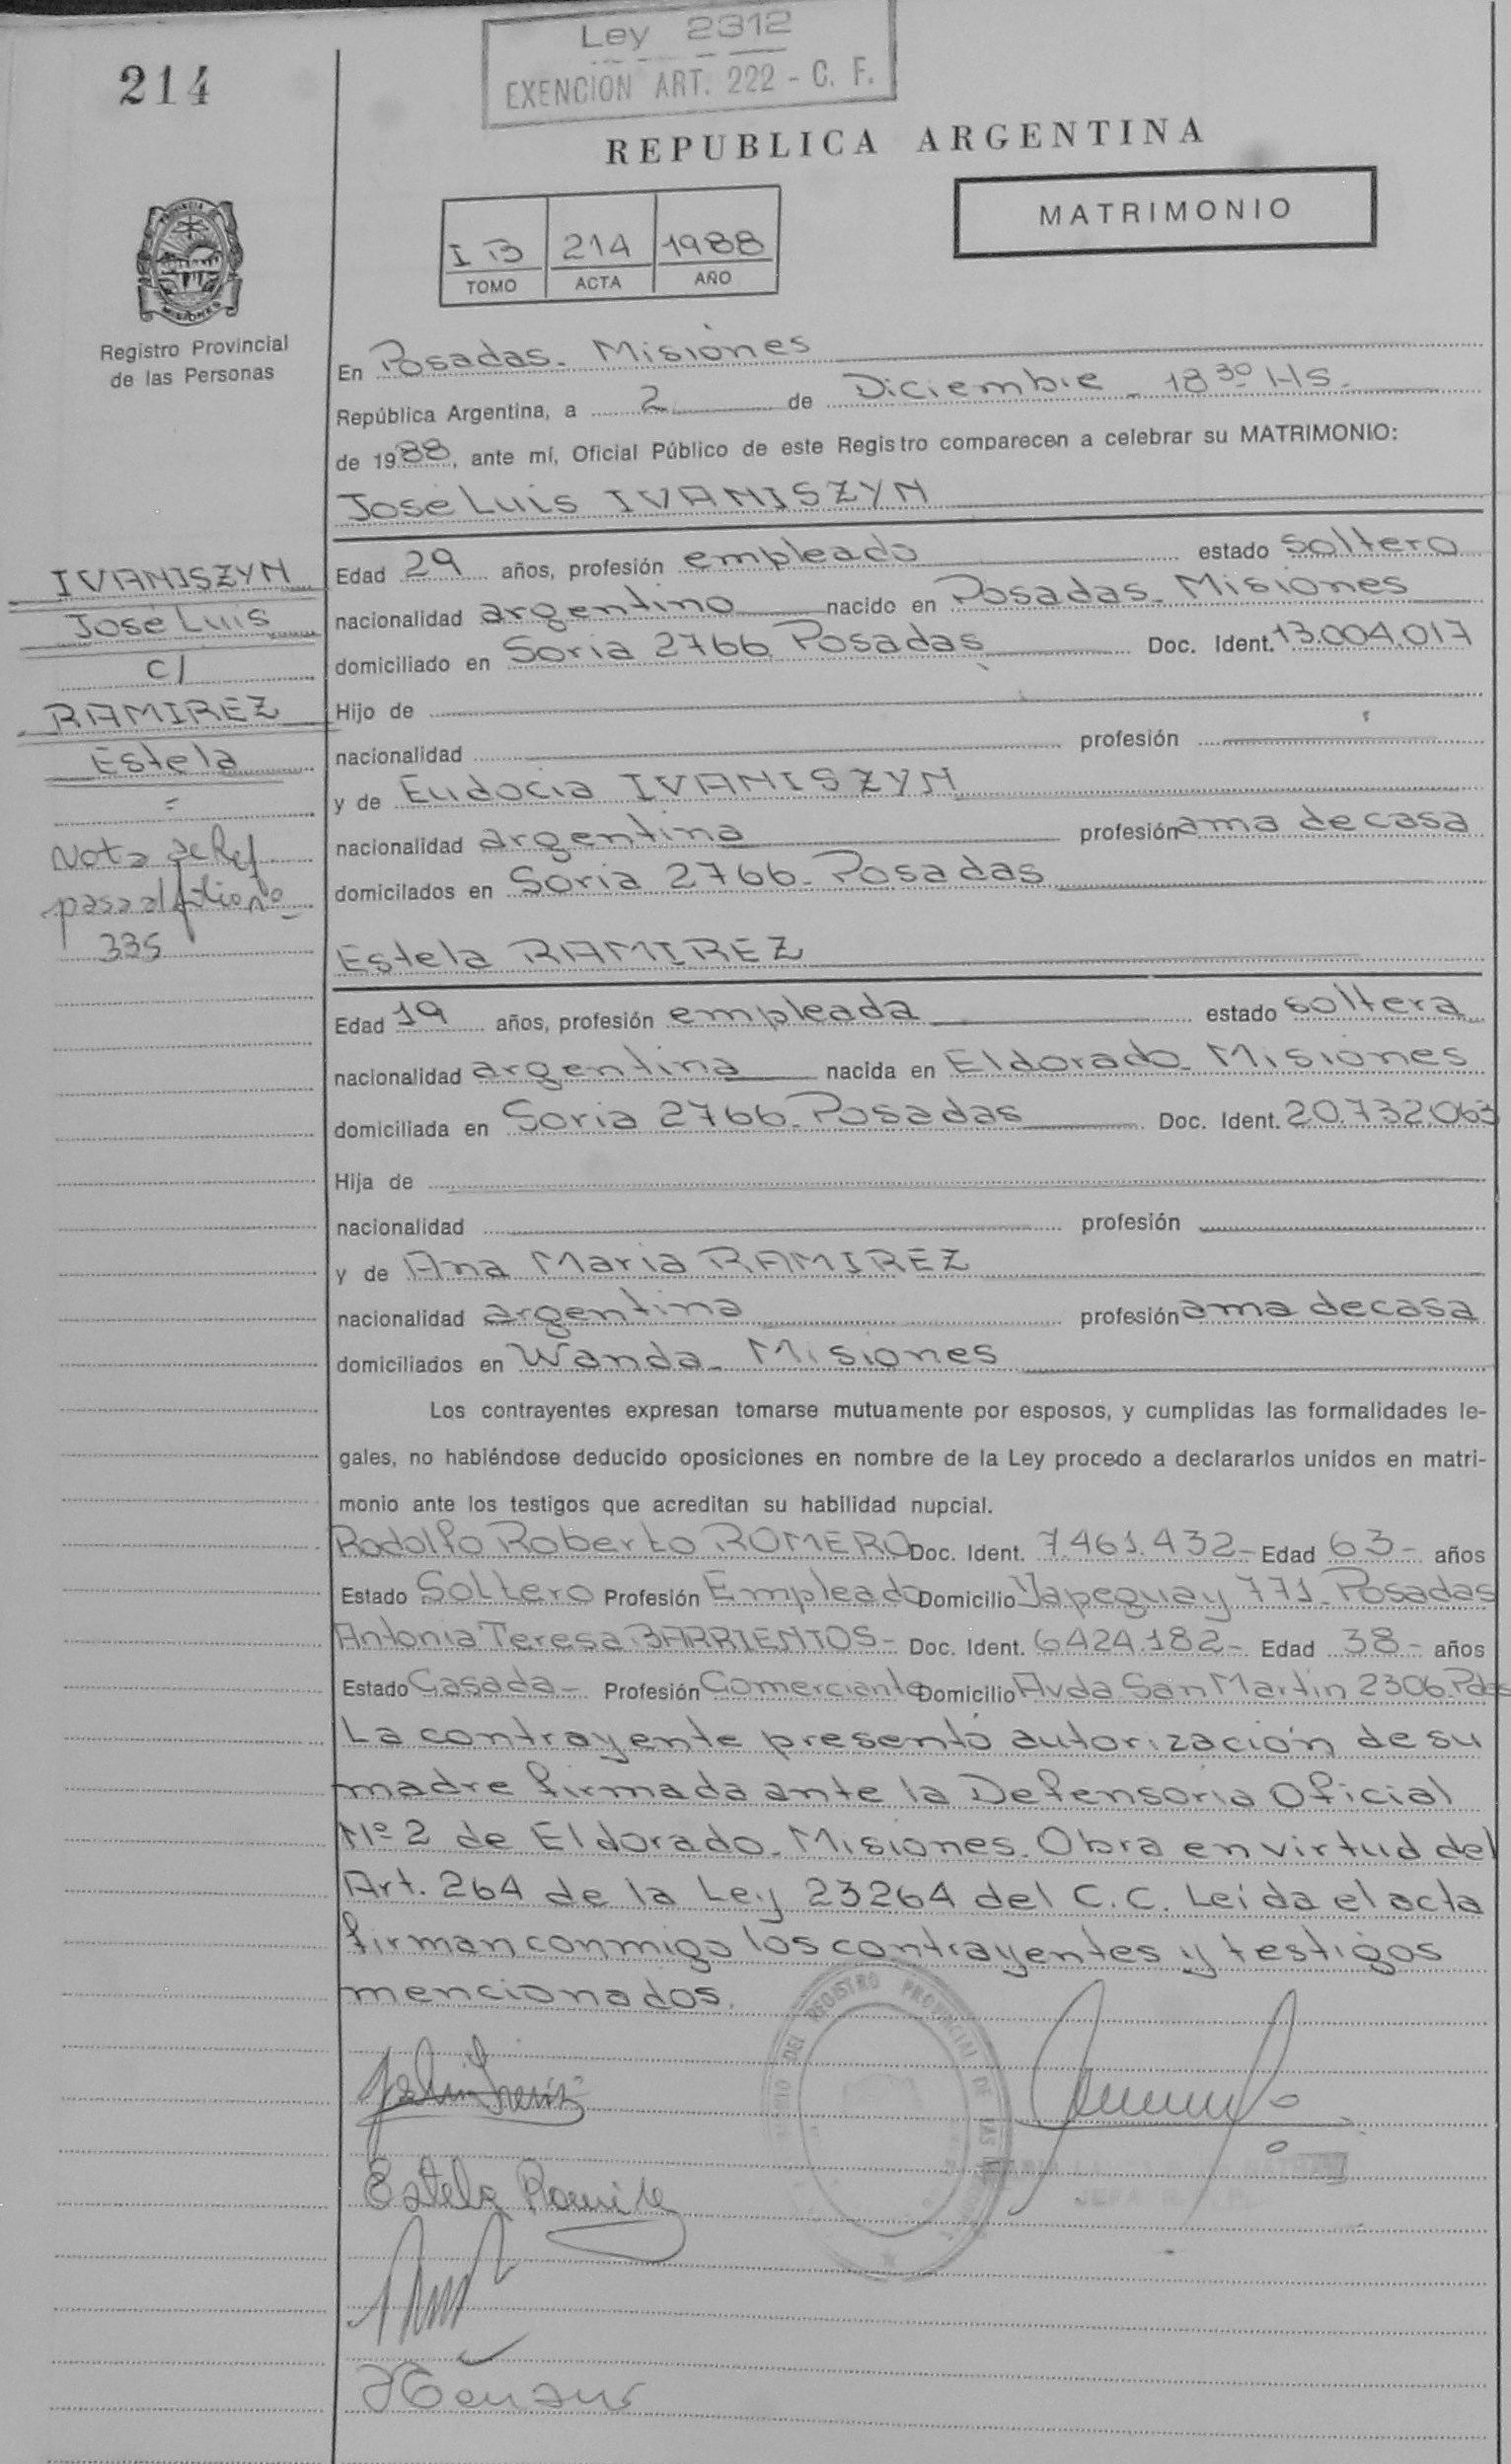 Ley 2312
EXENCION ART. 222 - C. F.
214
REPUBLICA ARGENTINA
MATRIMONIO
I B 214 1988
TOMO ACTA AÑO
PROVINCIA
MISIONES
Registro Provincial
de las Personas
En Posadas - Misiones
República Argentina, a 2 de Diciembre - 18 30 Hs -
de 1988, ante mí, Oficial Público de este Registro comparecen a celebrar su MATRIMONIO:
José Luis IVANISZYN
IVANISZYN
José Luis
c/
RAMIREZ
Estela
=
Nota de Ref
pasa al folio nº
335
Edad 29 años, profesión empleado estado soltero
nacionalidad argentino nacido en Posadas - Misiones
domiciliado en Soria 2766 Posadas Doc. Ident. 13.004.017
Hijo de
nacionalidad profesión
y de Eudocia IVANISZYN
nacionalidad argentina profesión ama de casa
domicilados en Soria 2766 - Posadas
Estela RAMIREZ
Edad 19 años, profesión empleada estado soltera
nacionalidad argentina nacida en Eldorado - Misiones
domiciliada en Soria 2766 - Posadas Doc. Ident. 20.732.063
Hija de
nacionalidad profesión
y de Ana Maria RAMIREZ
nacionalidad argentina profesión ama de casa
domiciliados en Wanda - Misiones
Los contrayentes expresan tomarse mutuamente por esposos, y cumplidas las formalidades le-
gales, no habiéndose deducido oposiciones en nombre de la Ley procedo a declararlos unidos en matri-
monio ante los testigos que acreditan su habilidad nupcial.
Rodolfo Roberto ROMERO Doc. Ident. 7.461.432 - Edad 63 - años
Estado Soltero Profesión Empleado Domicilio Yapeguay 771 - Posadas
Antonia Teresa BARRIENTOS - Doc. Ident. 6424.182 - Edad 38 - años
Estado Casada - Profesión Comerciante Domicilio Avda San Martin 2306 Pdas
La contrayente presentó autorización de su
madre firmada ante la Defensoria Oficial
Nº 2 de Eldorado - Misiones. Obra en virtud del
Art. 264 de la Ley 23264 del C.C. Leida el acta
firman conmigo los contrayentes y testigos
mencionados.
DEL REGISTRO PROVINCIAL DE LAS
Estela Ramire
JEFA